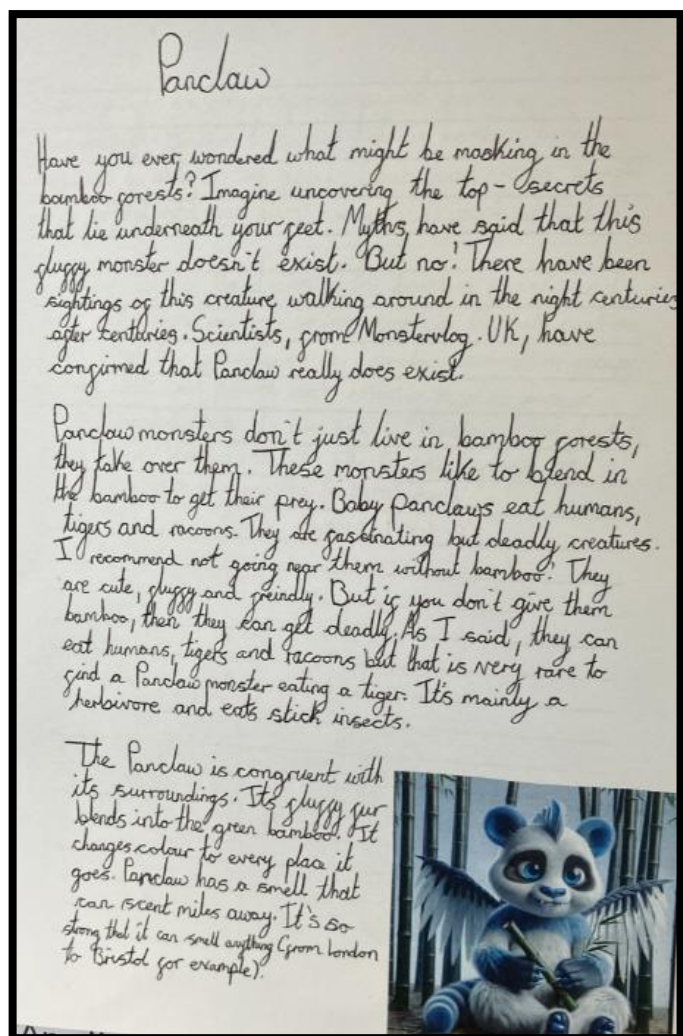 Panclaw
Have you ever, wondered what might be masking in the
bamboo forests? Imagine uncovering the top - secrets
that lie underneath your feet. Myths, have said that this
fluffy monster doesn't exist. But no! There have been
sightings of this creature walking around in the night centuries
after centuries. Scientists, from Monstervlog. UK, have
confirmed that Panclaw really does exist.
Panclaw monsters don't just live in bamboo forests,
they take over them. These monsters like to blend in
the bamboo to get their prey. Baby panclaws eat humans,
tigers and racoons. They are fascinating but deadly creatures.
I recommend not going near them without bamboo! They
are cute, fluffy and freindly. But if you don't give them
bamboo, then they can get deadly. As I said, they can
eat humans, tigers and racoons but that is very rare to
find a Panclaw monster eating a tiger. It's mainly a
herbivore and eats stick insects.
The Panclaw is congruent with
its surroundings. Its fluffy fur
blends into the green bamboo. It
changes colour to every place it
goes. Panclaw has a smell that
can scent miles away. It's so
strong that it can smell anything (from London
to Bristol for example).